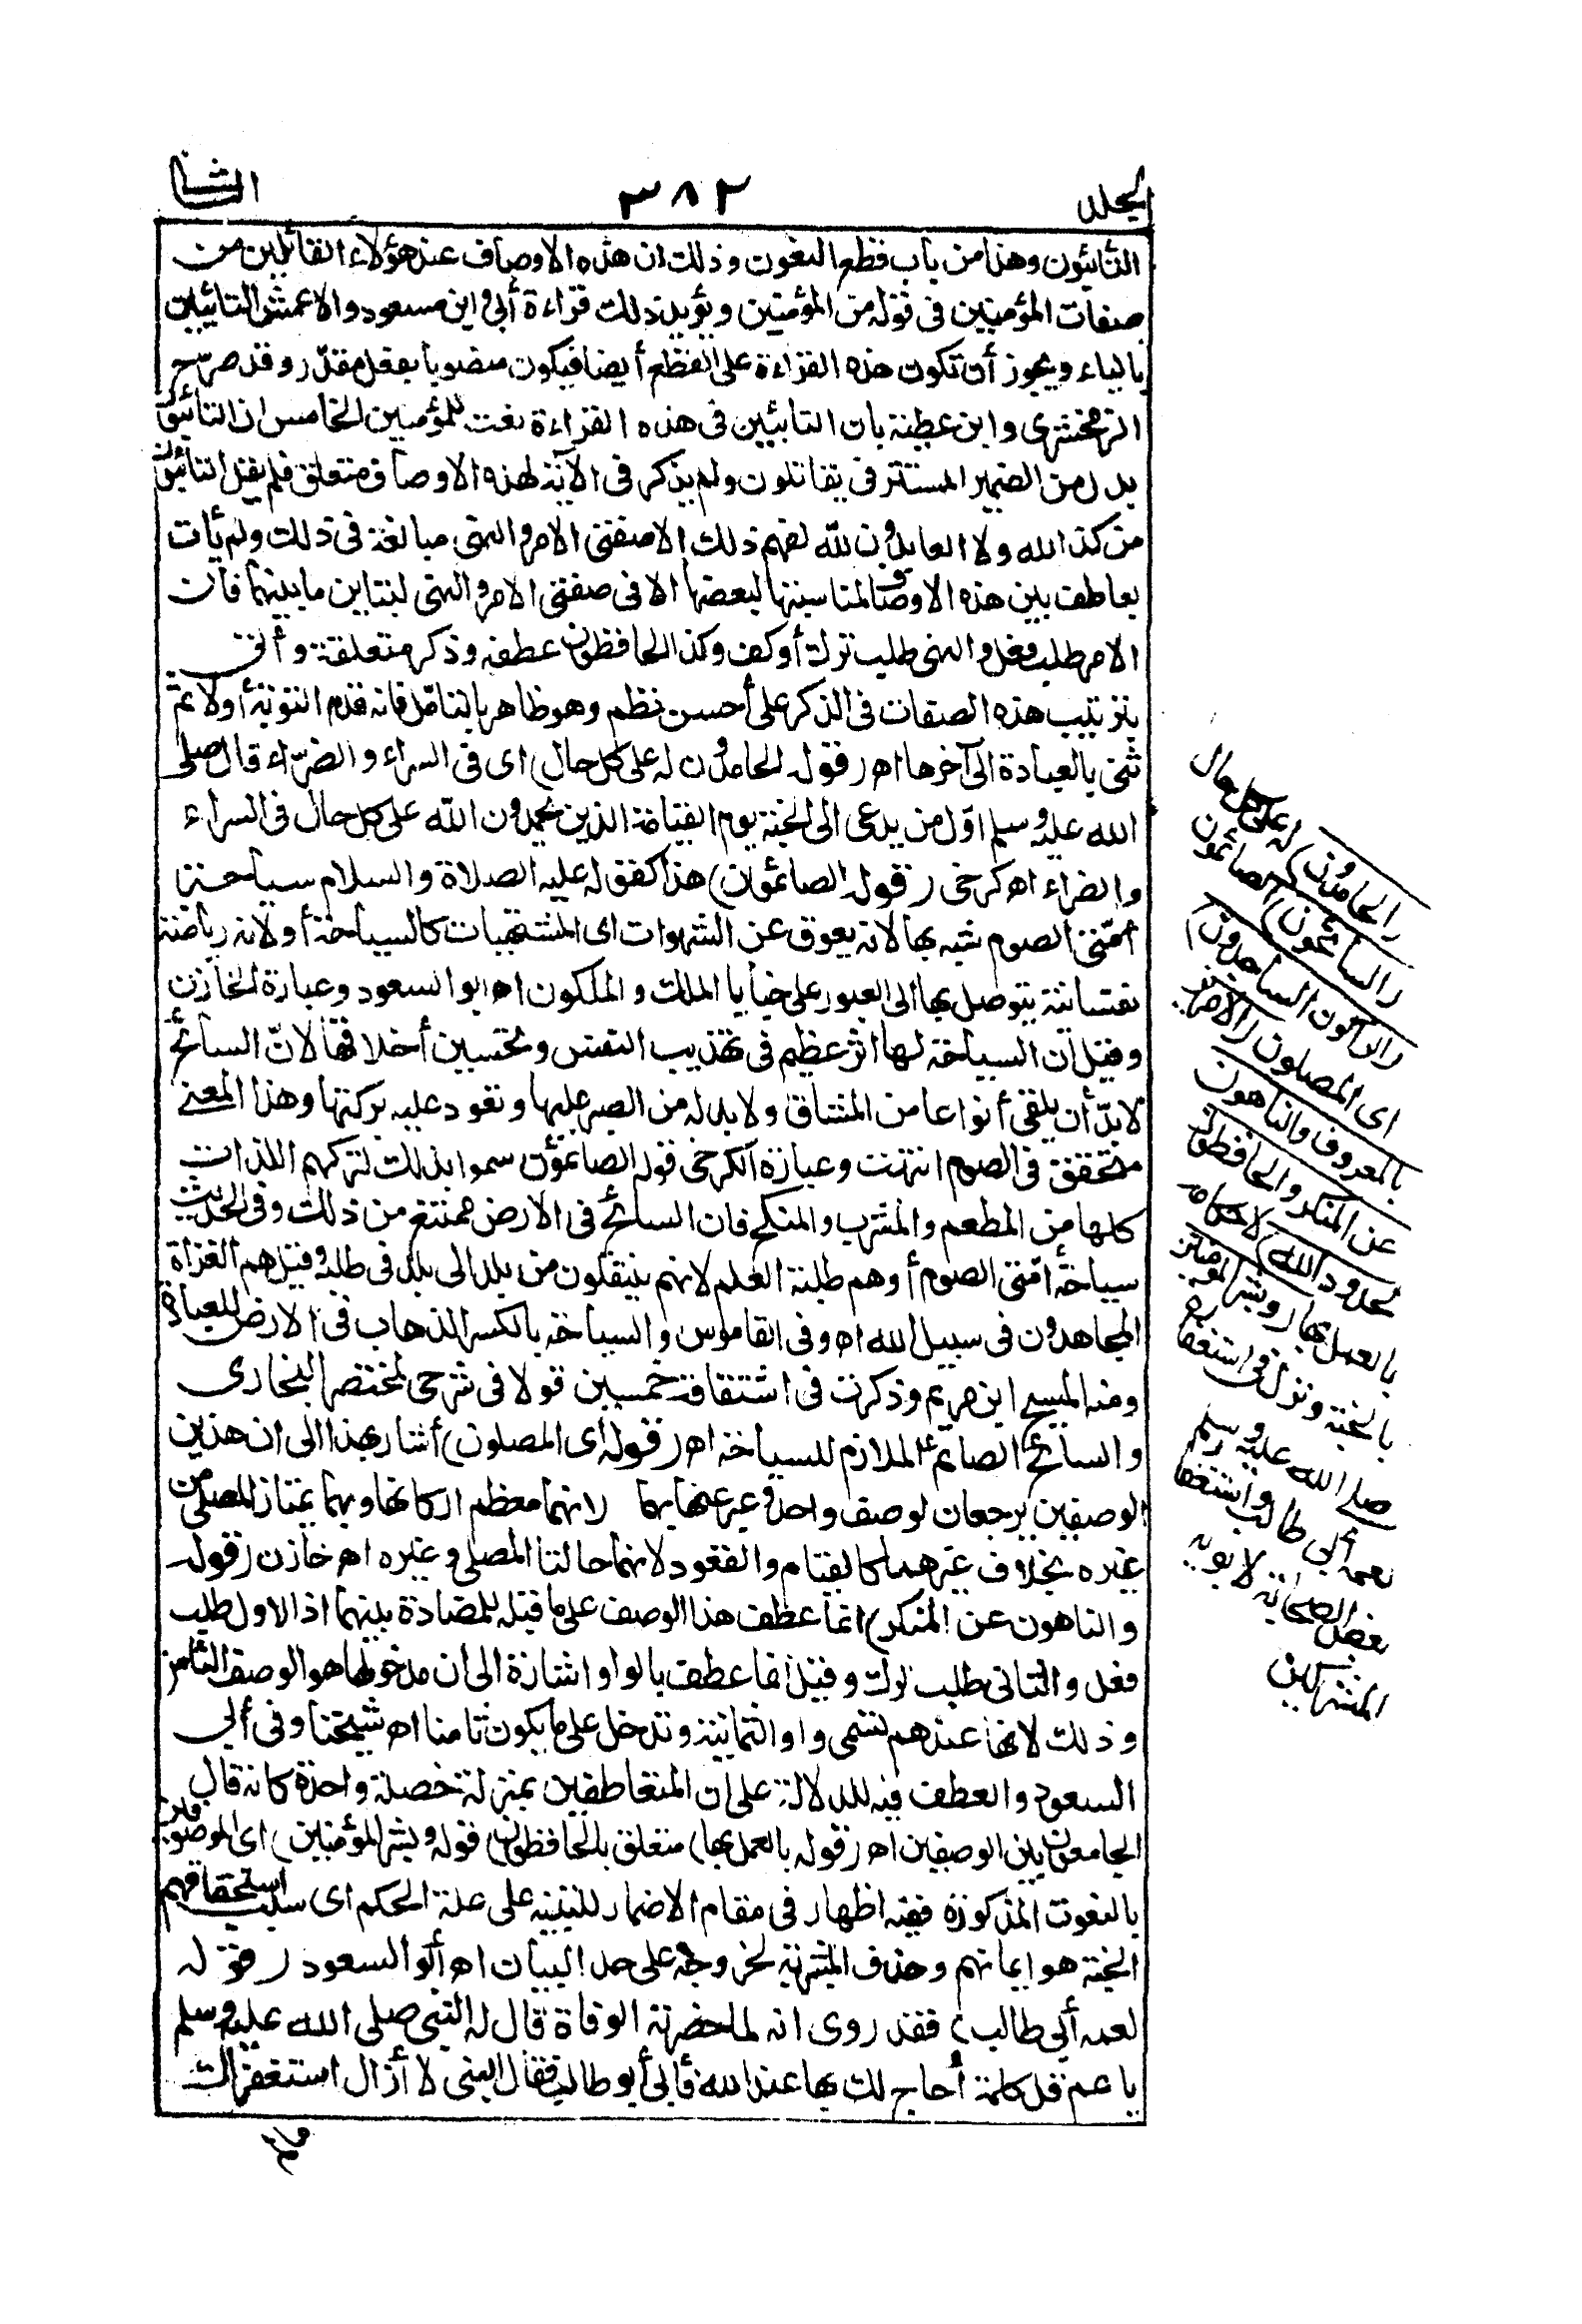 المجلد
٣٨٢
الثانى
التائبون وهذا من باب قطع النعوت وذلك ان هذه الاوصاف عند هؤلاء القائلين من
صفات المؤمنين فى قوله من المؤمنين ويؤيد ذلك قراءة أبى وابن مسعود والاعمش التائبين
بالياء ويجوز أن تكون هذه القراءة على القطع أيضا فيكون منصوبا بفعل مقدّر وقد صرّح
الزمخشرى وابن عطية بان التائبين فى هذه القراءة نعت للمؤمنين الخامس ان التائبون
بدل من الضمير المستتر فى يقاتلون ولم يذكر فى الآية لهذه الاوصاف متعلق فلم يقل التائبون
من كذا لله ولا العابدون لله لفهم ذلك الا صفتى الامر والنهى مبالغة فى ذلك ولم يأت
بعاطف بين هذه الاوصاف لمناسبتها لبعضها الا فى صفتى الامر والنهى لتباين ما بينهما فان
الامر طلب فعل والنهى طلب ترك أو كف وكذا الحافظون عطفه وذكر متعلقة وأتى
بترتيب هذه الصفات فى الذكر على أحسن نظم وهو ظاهر بالتامّل فانه قدم التوبة أولا ثم
ثنى بالعبادة الى آخرها اهـ (قوله الحامدون له على كل حال) اى فى السراء والضرّاء قال صلى
الله عليه وسلم اوّل من يدعى الى الجنة يوم القيامة الذين يحمدون الله على كل حال فى السراء
والضراء اهـ كرخى (قوله الصائمون) هذا كقوله عليه الصلاة والسلام سياحة
أمّتى الصوم شبه بها لانه يعوق عن الشهوات اى المشتهيات كالسياحة أو لانه رياضة
نفسانية يتوصل بها الى العبور على خبايا الملك والملكوت اهـ ابو السعود وعبارة الخازن
وقيل ان السياحة لها اثر عظيم فى تهذيب النفس وتحسين أخلاقها لانّ السائح
لا بدّ أن يلقى أنواعا من المشاق ولا بد له من الصبر عليها وتعود عليه بركتها وهذا المعنى
متحقق فى الصوم انتهت وعبارة الكرخى قوله الصائمون سموا بذلك لتركهم اللذات
كلها من المطعم والمشرب والمنكح فان السائح فى الارض ممتنع من ذلك وفى الحديث
سياحة أمّتى الصوم أو هم طلبة العلم لانهم ينتقلون من بلد الى بلد فى طلبه وقيل هم الغزاة
المجاهدون فى سبيل الله اهـ وفى القاموس والسياحة بالكسر الذهاب فى الارض للعبادة
ومنه المسيح ابن مريم وذكرت فى اشتقاقه خمسين قولا فى شرحى لمختصر البخارى
والسائح الصائم الملازم للسياحة اهـ (قوله أى المصلون) أشار بهذا الى ان هذين
الوصفين يرجعان لوصف واحد وعبر عنها بهما لانهما معظم اركانها وبهما يمتاز المصلى من
غيره بخلاف غيرهما كالقيام والقعود لانهما حالتا المصلى وغيره اهـ خازن (قوله
والناهون عن المنكر) انما عطف هذا الوصف على ما قبله للمضادة بينهما اذ الاول طلب
فعل والثانى طلب ترك وقيل انما عطف بالواو اشارة الى ان مدخولها هو الوصف الثامن
وذلك لانها عندهم تسمى واو الثمانية وتدخل على ما يكون ثامنا اهـ شيخنا وفى أبى
السعود والعطف فيه للدلالة على ان المتعاطفين بمنزلة خصلة واحدة كانه قال
الجامعون بين الوصفين اهـ (قوله بالعمل بها) متعلق بالحافظون (قوله وبشر المؤمنين) اى الموصوفين
بالنعوت المذكورة ففيه اظهار فى مقام الاضمار للتنبيه على علة الحكم اى سبب استحقاقهم
الجنة هو ايمانهم وحذف المبشر به لخروجه على حد البيان اهـ أبو السعود (قوله
لعمه أبى طالب) فقد روى انه لما حضرته الوفاة قال له النبى صلى الله عليه وسلم
يا عم قل كلمة أحاج لك بها عند الله فأبى أبو طالب فقال النبى لا أزال استغفر لك
(الحامدون) له على كل حال
(السائحون) الصائمون
(الراكعون الساجدون)
اى المصلون (الآمرون
بالمعروف والناهون
عن المنكر والحافظون
لحدود الله) لاحكامه
بالعمل بها (وبشر المؤمنين)
بالجنة ونزل فى استغفاره
صلى الله عليه وسلم
لعمه أبى طالب واستغفار
بعض الصحابة لابويه
المشركين